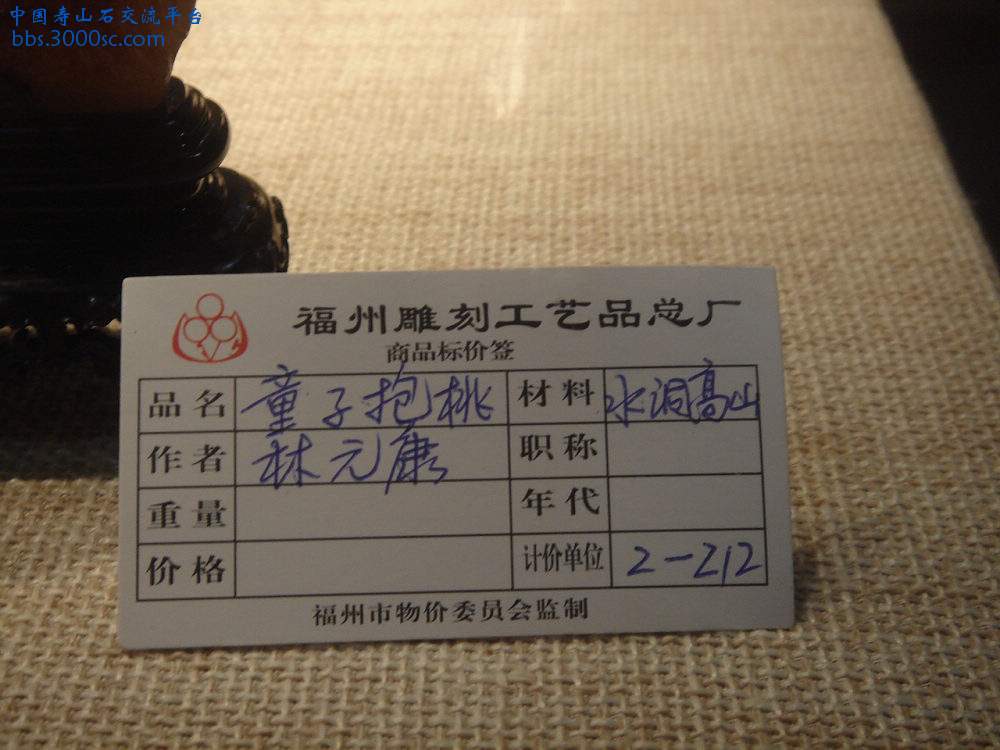 中国寿山石交流平台
bbs.3000sc.com
福州雕刻工艺品总厂
商品标价签
品名 童子抱桃 材料 水洞高山
作者 林元康 职称
重量 年代
价格 计价单位 2-212
福州市物价委员会监制